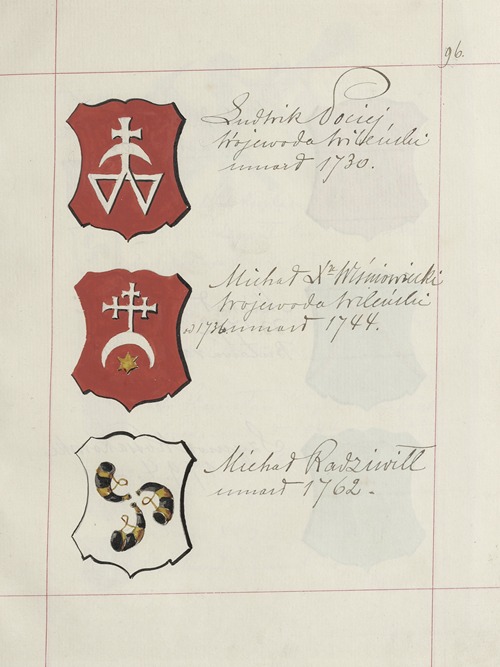 96.
Ludwik Pociej
Wojewoda wileński
umarł 1730.
Michał Xże Wiśniowiecki
Wojewoda wileński
od 1736 umarł 1744.
Michał Radziwiłł
umarł 1762.